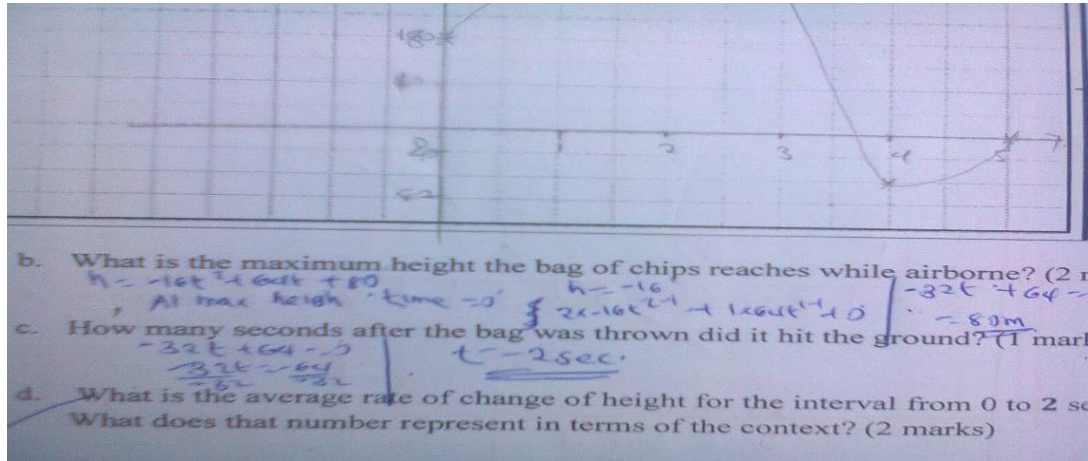 180
1 2 3 4 5
b. What is the maximum height the bag of chips reaches while airborne? (2
h = -16t² + 64t + 80 h = -16 -32t + 64 =
At max heigh time = 0 2x-16t²⁻¹ + 1x64t¹⁻¹ + 0 = 80m
c. How many seconds after the bag was thrown did it hit the ground? (1 mark
-32t + 64 = 0 t = -2 sec.
-32t = -64
-32 -32
d. What is the average rate of change of height for the interval from 0 to 2 se
What does that number represent in terms of the context? (2 marks)